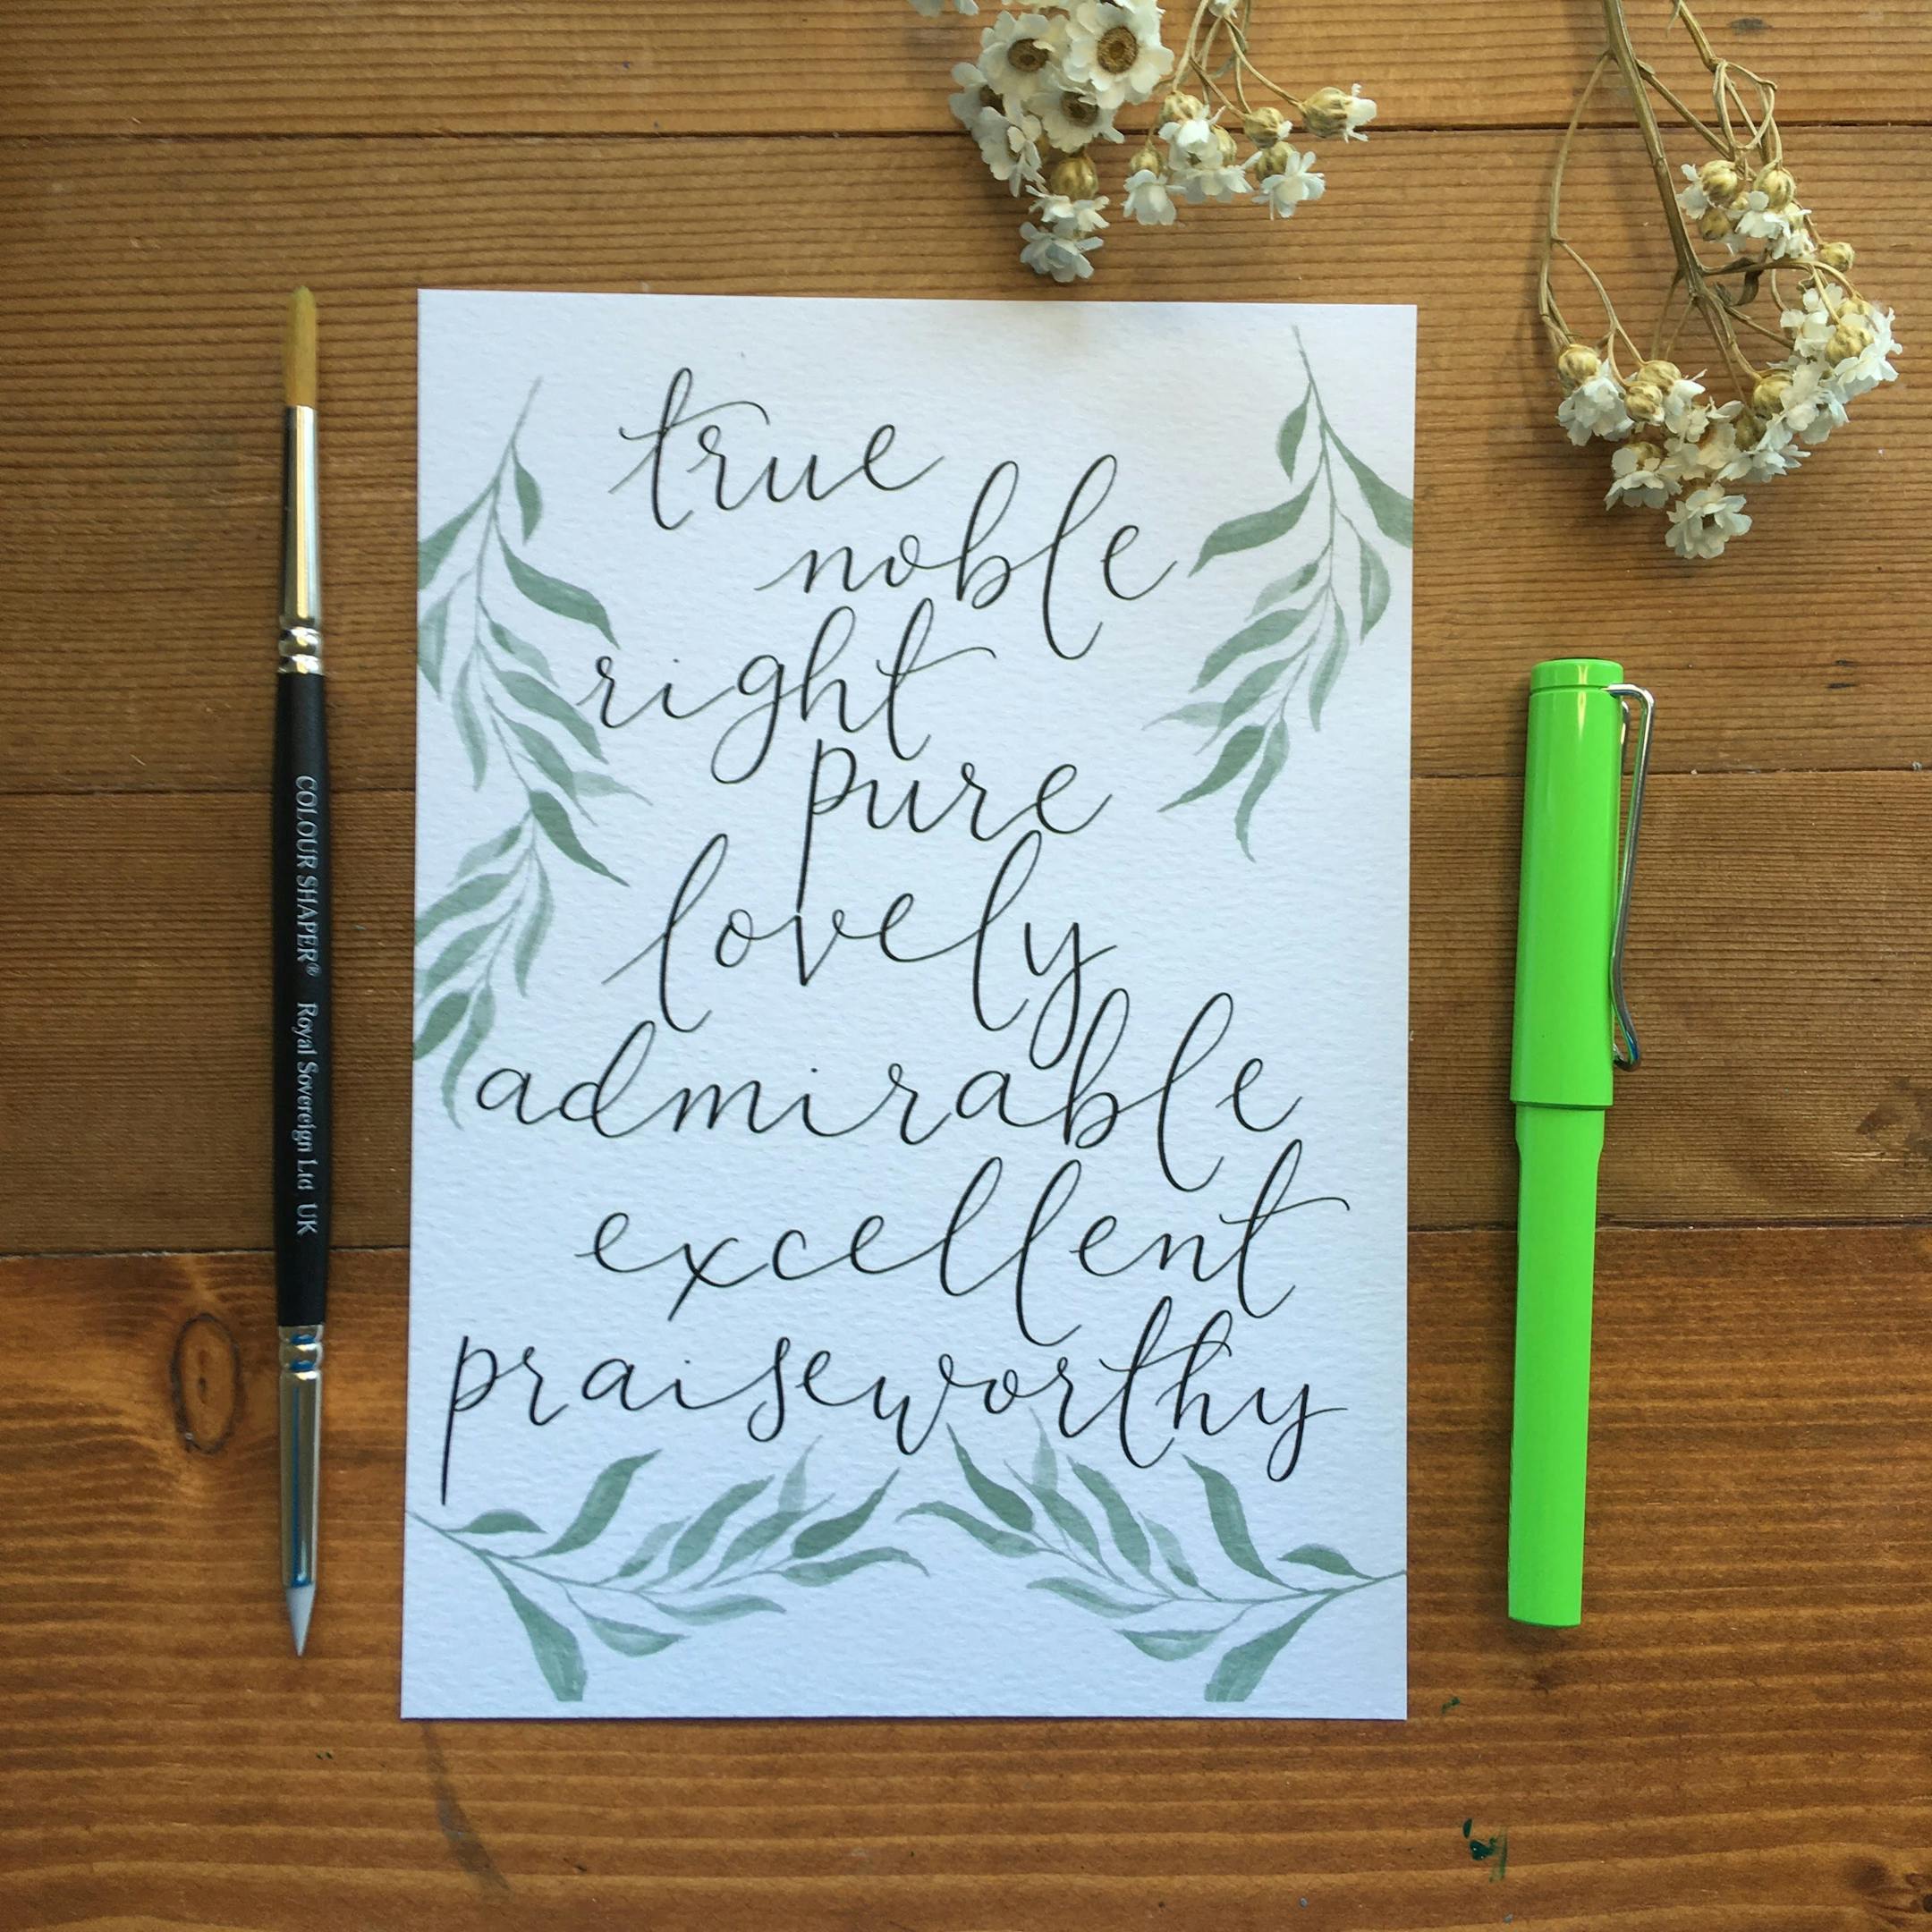 true
noble
right
pure
lovely
admirable
excellent
praiseworthy
COLOUR SHAPER® Royal Sovereign Ltd UK